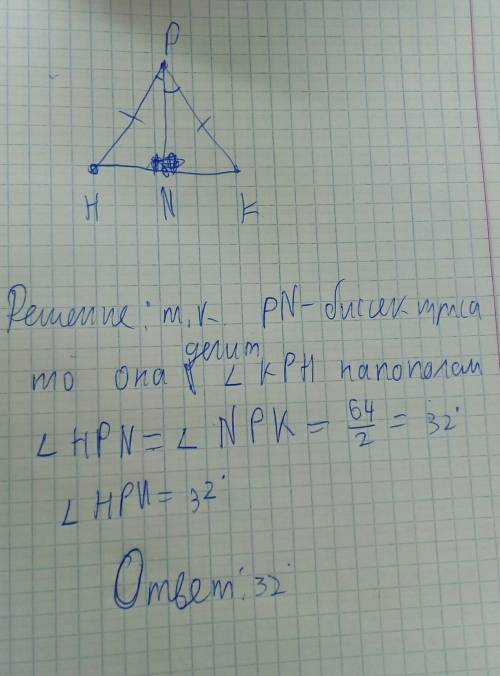 P
H N K
Решение: т.к. PN-биссектриса
то она делит ∠ KPH напополам
∠ HPN = ∠ NPK = 64/2 = 32°
∠ HPN = 32°
Ответ: 32°